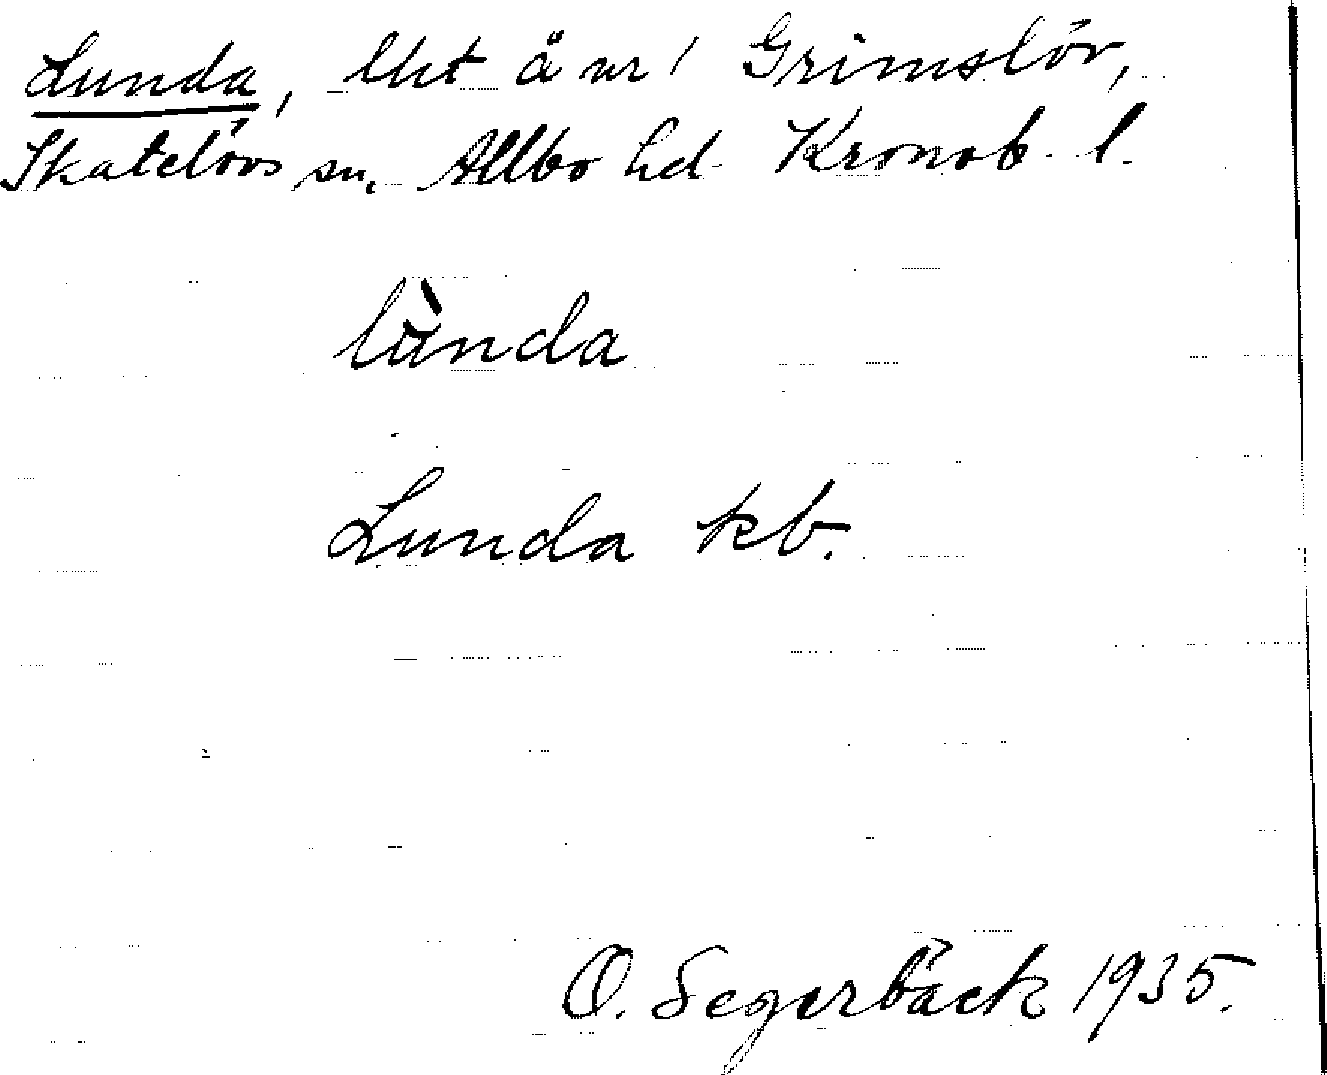 Lunda, lht å nr 1 Grimslöv,
Skatelövs sn. Allbo hd. Kronob. l.
lùnda
Lunda kb.
O. Segerbäck 1935.